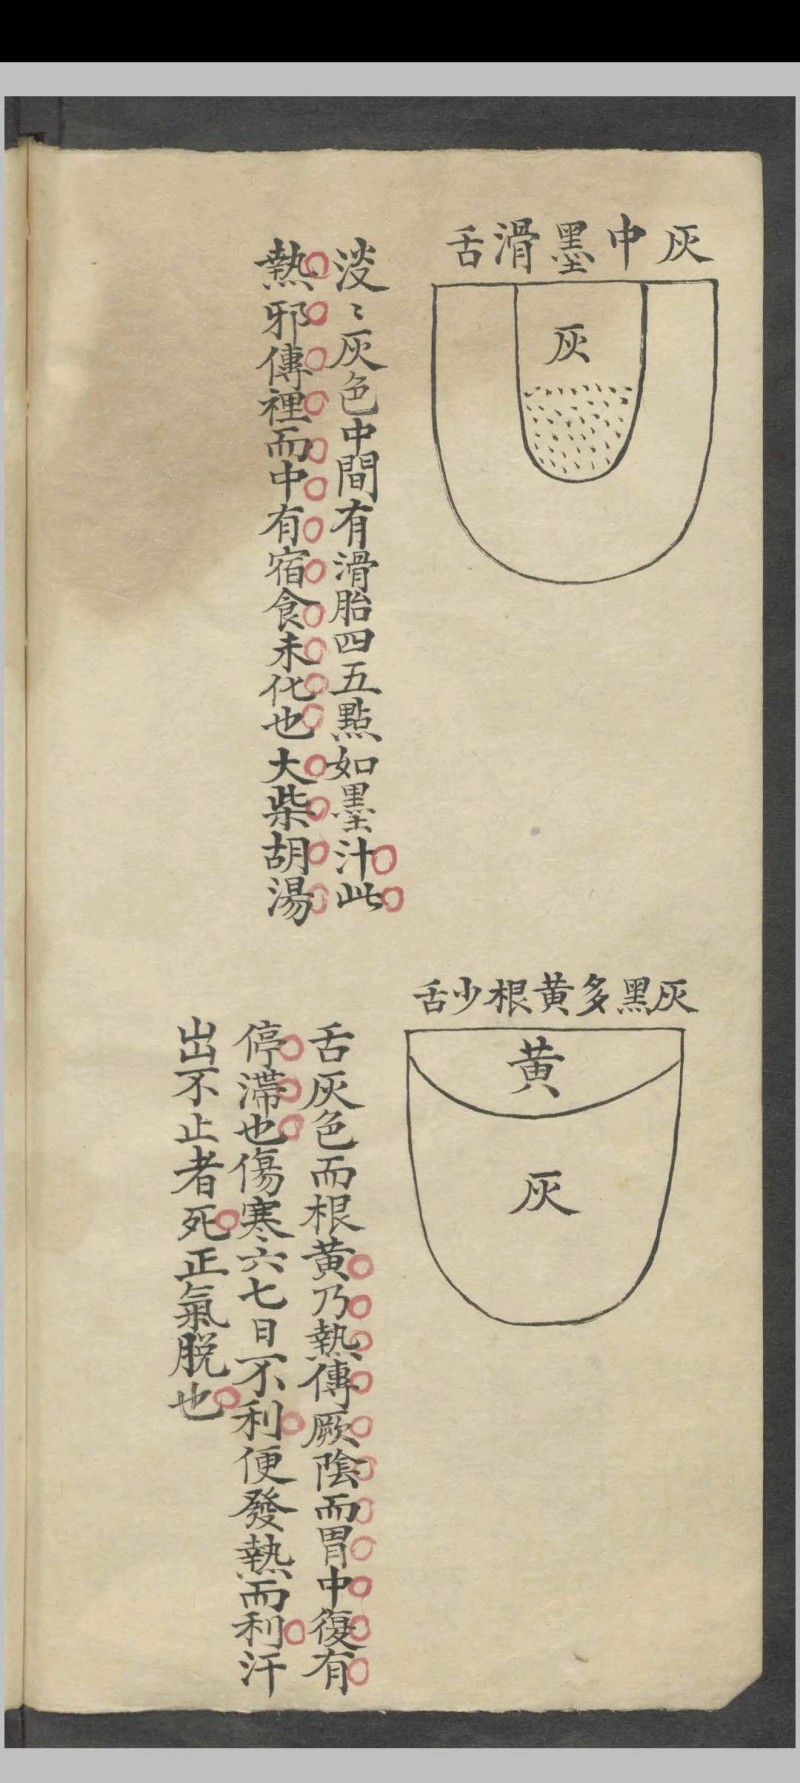 灰中墨滑舌
灰
淡〻灰色中間有滑胎四五點如墨汁此
熱邪傳裡而中有宿食未化也大柴胡湯
灰黑多黄根少舌
黄
灰
舌灰色而根黄乃熱傳厥陰而胃中復有
停滯也傷寒六七日不利便發熱而利汗
出不止者死正氣脱也